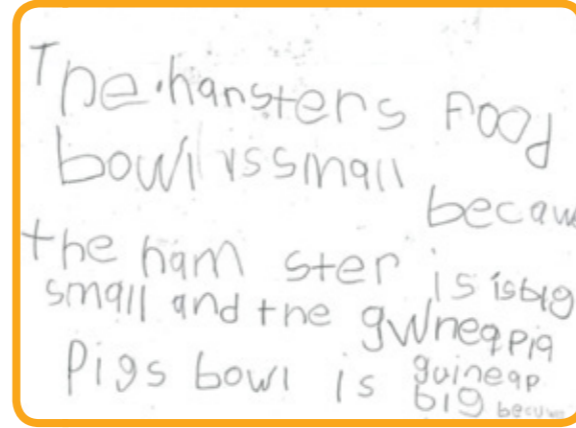 The hansters Food
bowl is small
becau
the ham ster is is big
small and the gwineapig
Pigs bowl is guineap
big becu